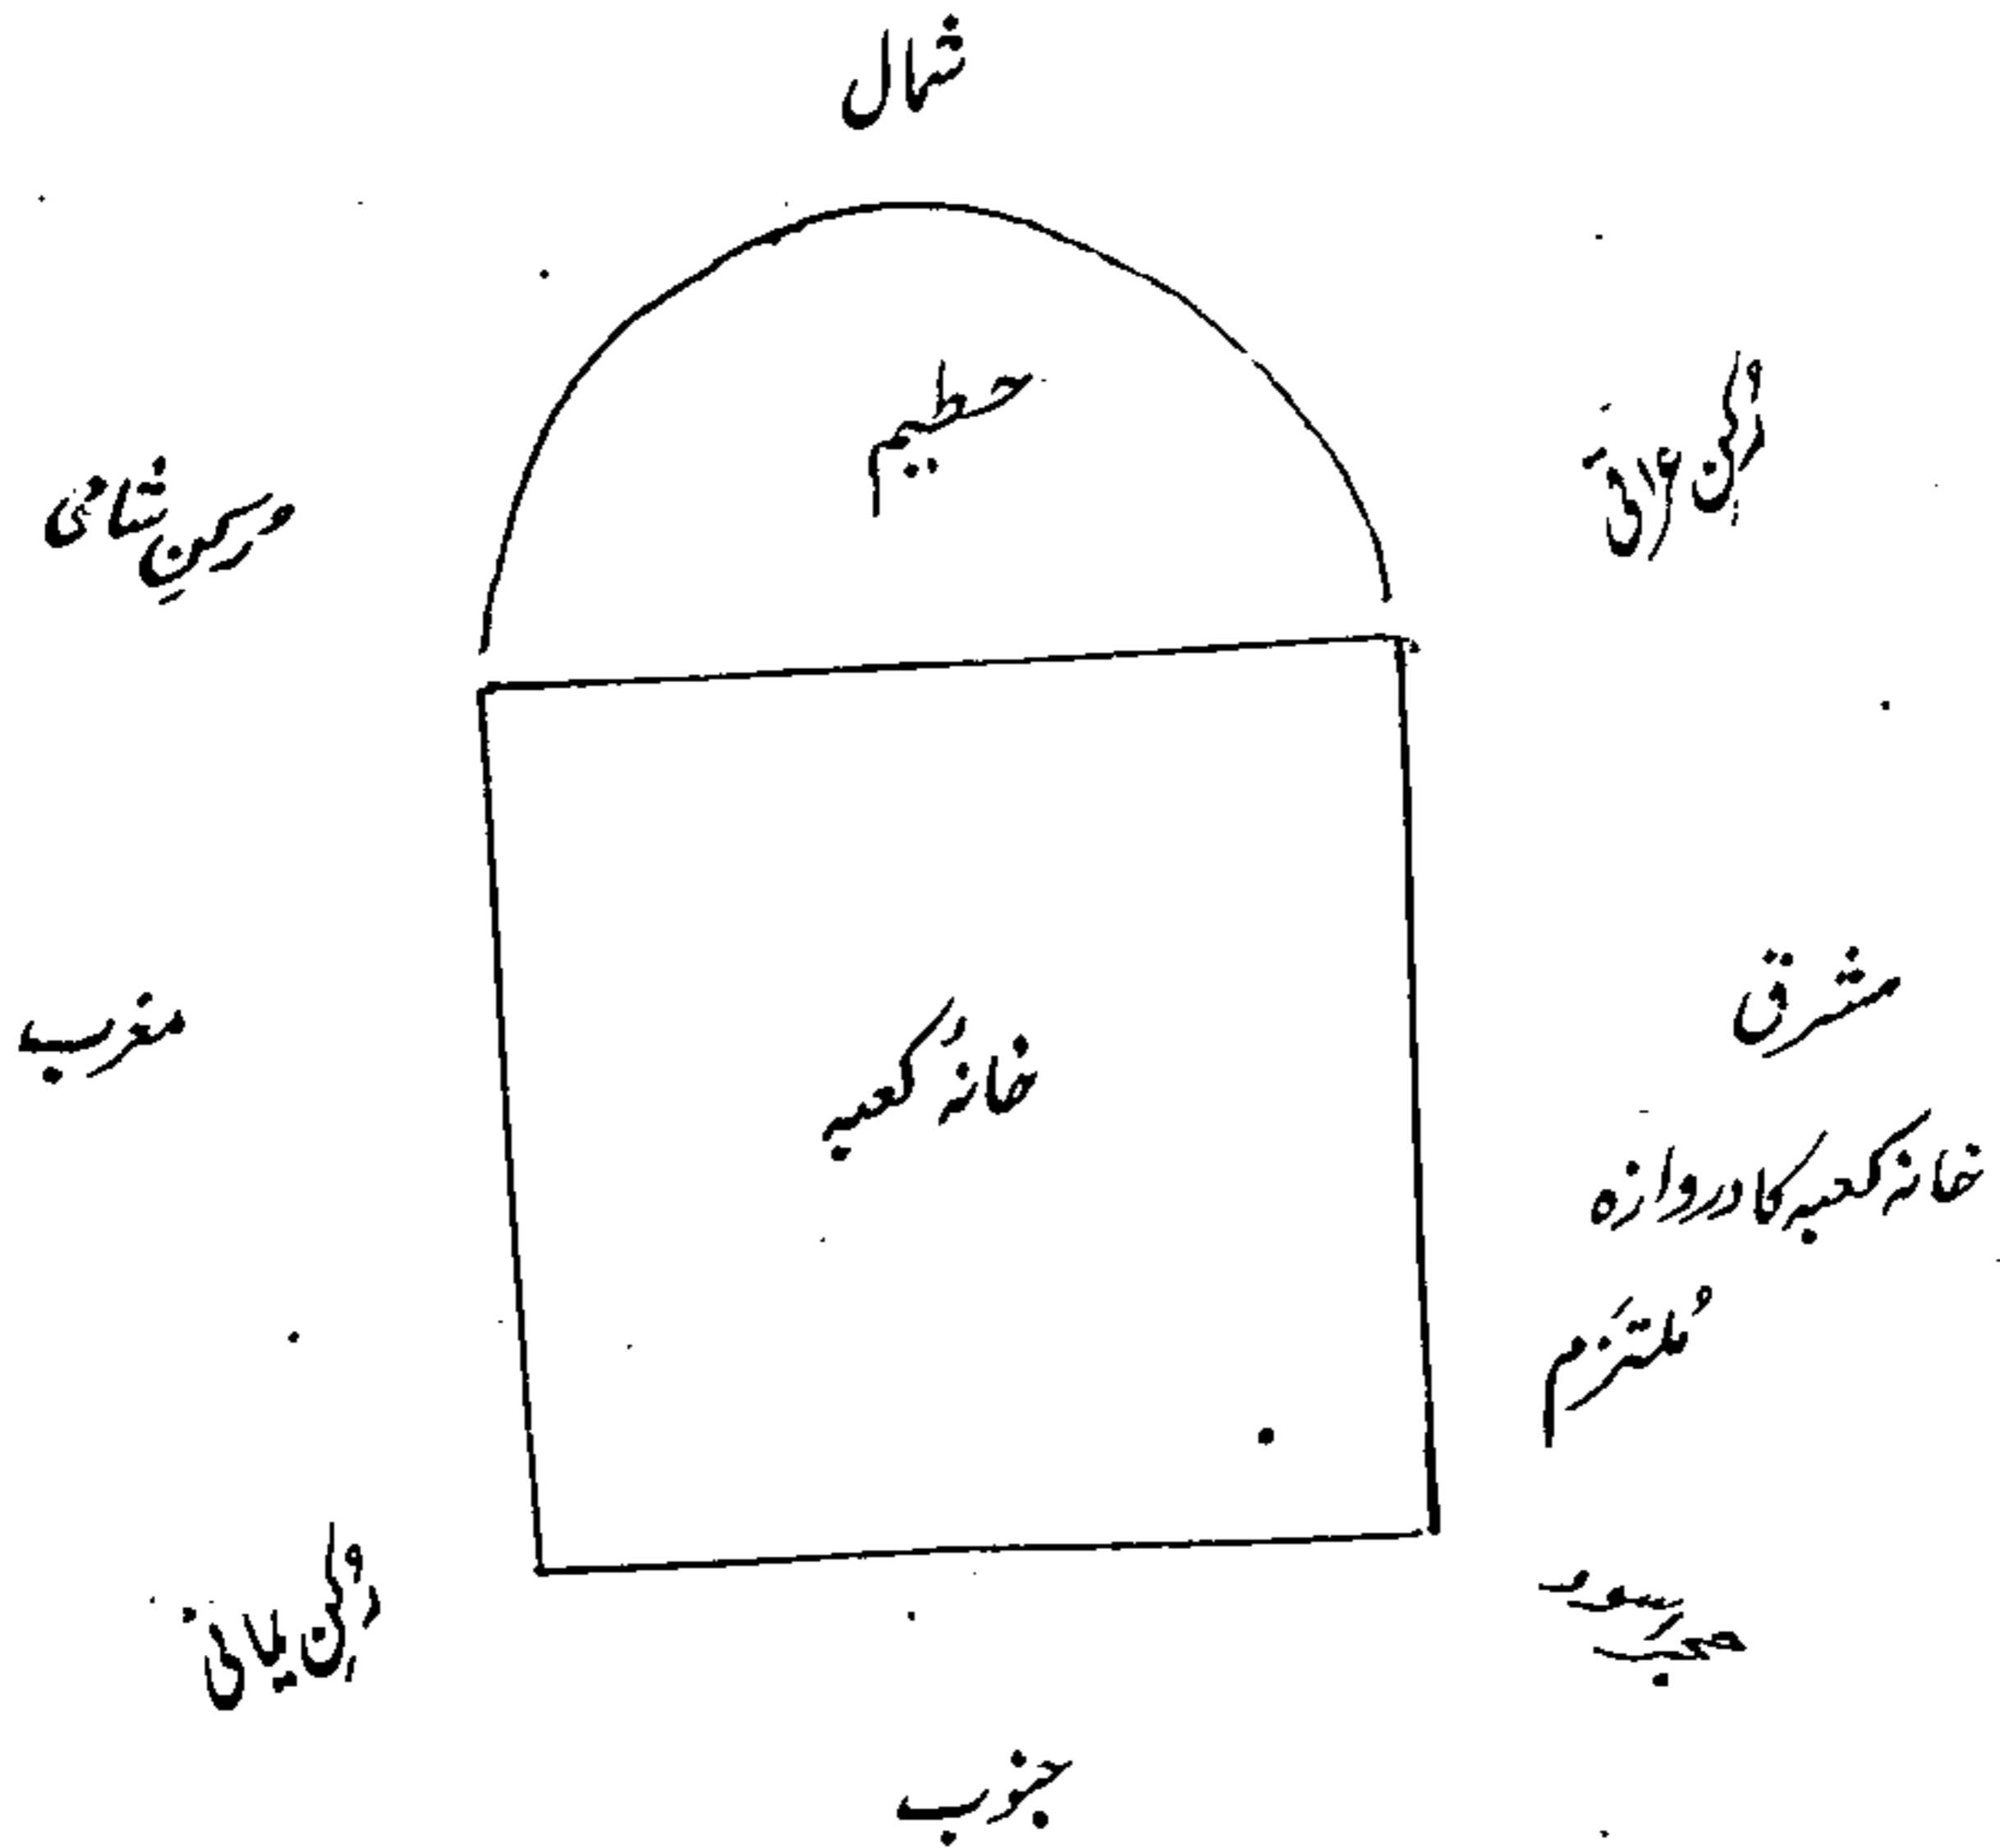 شمال
حطیم
رُکنِ عراقی
رُکنِ شامی
مشرق
مغرب
خانۂ کعبہ
خانہ کعبہ کا دروازہ
مُلتَزم
حجرِ اسود
رُکنِ یمانی
جنوب